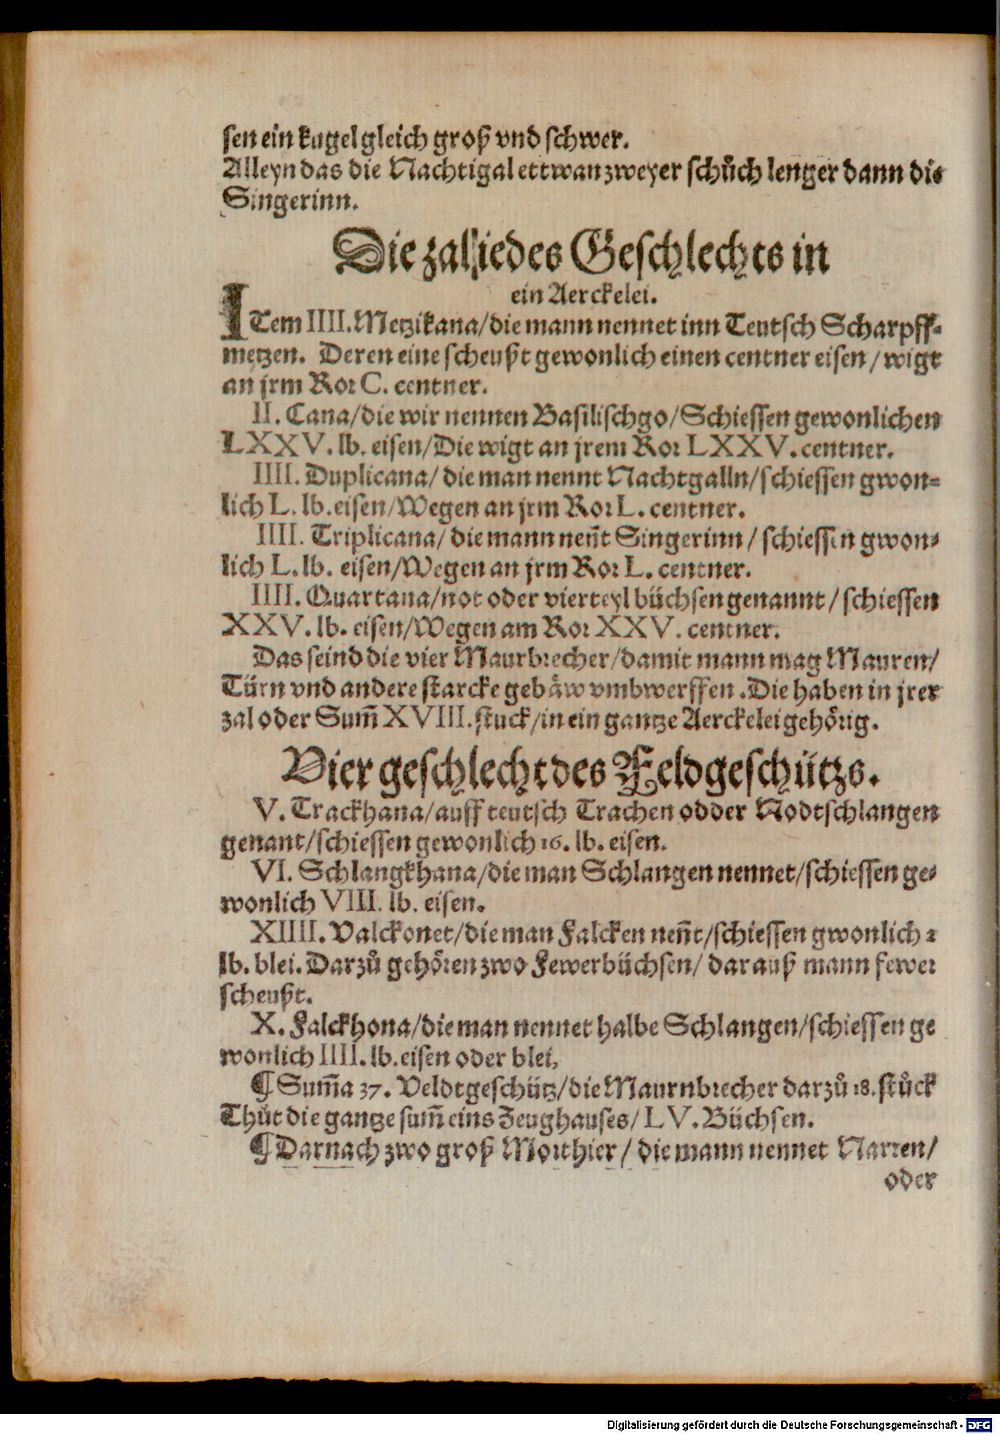 sen ein kugel gleich groß vnd schwer.
Alleyn das die Nachtigal ettwan zweyer schůch lenger dann die
Singerinn.
Die zal iedes Geschlechts in
ein Aerckelei.
ITem IIII. Metzikana/die mann nennet inn Teutsch Scharpff-
metzen. Deren eine scheußt gewonlich einen centner eisen/wigt
an jrm Ror C. centner.
II. Cana/die wir nennen Basilischgo/Schiessen gewonlichen
LXXV. lb. eisen/Die wigt an jrem Ror LXXV. centner.
IIII. Duplicana/ die man nennt Nachtgalln/schiessen gwon-
lich L. lb. eisen/Wegen an jrm Ror L. centner.
IIII. Triplicana/ die mann neñt Singerinn/ schiessen gwon-
lich L. lb. eisen/Wegen an jrm Ror L. centner.
IIII. Quartana/not oder vierteyl büchsen genannt/schiessen
XXV. lb. eisen/Wegen am Ror XXV. centner.
Das seind die vier Maurbrecher/damit mann mag Mauren/
Türn vnd andere starcke gebäw vmbwerffen. Die haben in jrer
zal oder Sum̃ XVIII. stuck/in ein gantze Aerckelei gehörig.
Vier geschlecht des Feldgeschützs.
V. Trackhana/auff teutsch Trachen odder Nodtschlangen
genant/schiessen gewonlich 16. lb. eisen.
VI. Schlangkhana/die man Schlangen nennet/schiessen ge-
wonlich VIII. lb. eisen.
XIIII. Valckonet/die man Falcken neñt/schiessen gwonlich 2
lb. blei. Darzů gehören zwo Fewerbüchsen/ darauß mann fewer
scheußt.
X. Falckhona/die man nennet halbe Schlangen/schiessen ge
wonlich IIII. lb. eisen oder blei,
¶ Sum̃a 37. Veldtgeschütz/die Maurnbrecher darzů 18. stůck
Thůt die gantze sum̃ eins Zeughauses/ LV. Büchsen.
¶ Darnach zwo groß Morthier/ die mann nennet Narren/
oder
Digitalisierung gefördert durch die Deutsche Forschungsgemeinschaft - DFG